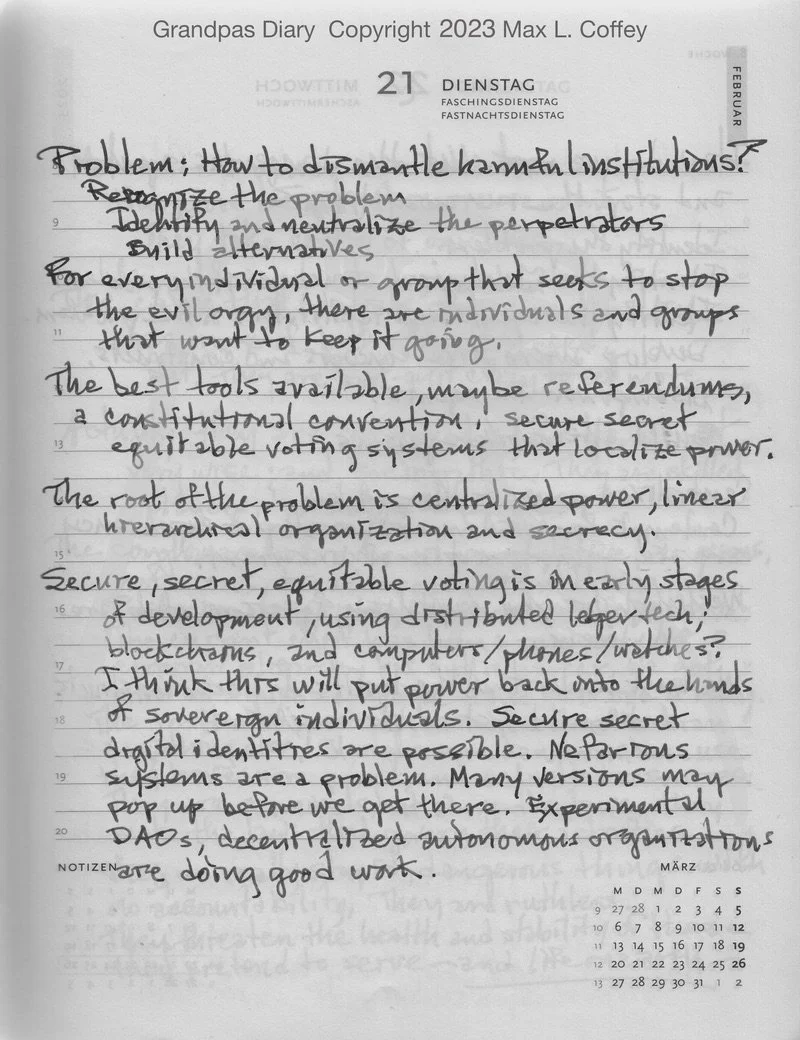 Grandpas Diary Copyright 2023 Max L. Coffey
21 DIENSTAG
FASCHINGSDIENSTAG
FASTNACHTSDIENSTAG
FEBRUAR
Problem: How to dismantle harmful institutions?
Recognize the problem
9 Identify and neutralize the perpetrators
Build alternatives
For every individual or group that seeks to stop
the evil orgy, there are individuals and groups
11 that want to keep it going.
The best tools available, maybe referendums,
a constitutional convention, secure secret
13 equitable voting systems that localize power.
The root of the problem is centralized power, linear
hierarchical organization and secrecy.
15
Secure, secret, equitable voting is in early stages
16 of development, using distributed ledger tech,
blockchains, and computers/phones/watches?
17 I think this will put power back into the hands
18 of sovereign individuals. Secure secret
digital identities are possible. Nefarious
19 systems are a problem. Many versions may
pop up before we get there. Experimental
20 DAOs, decentralized autonomous organizations
NOTIZEN are doing good work.
MÄRZ
M D M D F S S
9 27 28 1 2 3 4 5
10 6 7 8 9 10 11 12
11 13 14 15 16 17 18 19
12 20 21 22 23 24 25 26
13 27 28 29 30 31 1 2